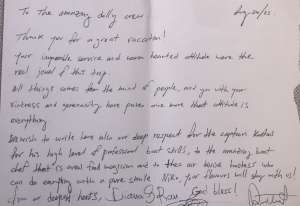 To the amazing dolly crew Aug/20/02.
Thank you for a great vacation!
Your impossible service and warm hearted attitude were the
real jewel of this trip.
All things comes from the mind of people, and you with your
kindness and generosity have proven once more that attitude is
everything
We wish to write here also our deep respect for the captain
for his high level of professional boat skills, to the amazing boat
chef that is even food magician and to the our house hostess who
can do everything with a pure smile Niki, your flowers will stay with us!
from our deepest hearts, Diana & God bless!